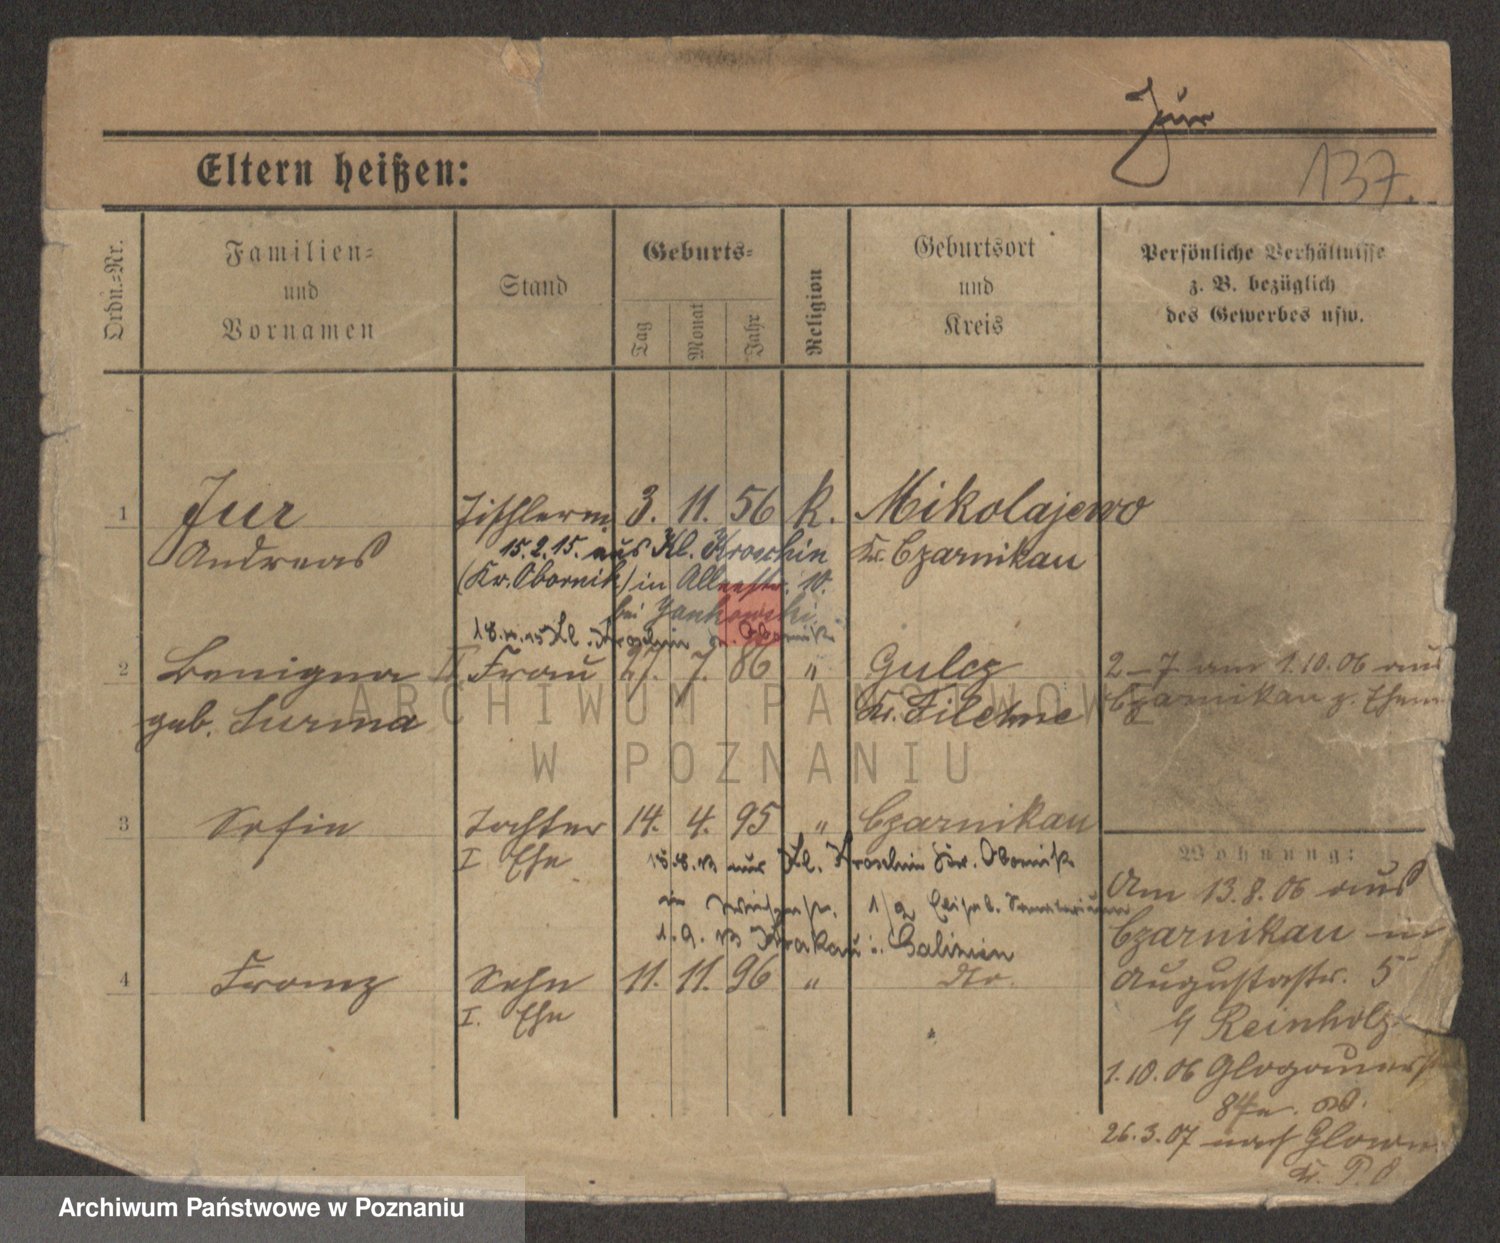 Jur
137.
Eltern heißen:
Ordn.=Nr.
Familien=
und
Vornamen
Stand
Geburts=
Tag
Monat
Jahr
Religion
Geburtsort
und
Kreis
Persönliche Verhältnisse
z. B. bezüglich
des Gewerbes usw.
1 Jur Tischlerm 3. 11. 56 K. Mikolajewo
Andreas Kr. Czarnikau
15.2.15. aus Kl. Kroschin
(Kr. Obornik) in Alleestr. 10.
bei Jankowski
Kl. Kroschin Kr. Obornik
2 Benigna II. Frau 27. 7. 86 " Gulcz
geb. Surma Kr. Filehne
2–7 am 1.10.06 aus
Czarnikau z. Ehem
3 Sofie Tochter 14. 4. 95 " Czarnikau
I Ehe
aus Kl. Kroschin Kr. Obornik
in
1.9. Krakau i. Galizien
4 Franz Sohn 11. 11. 96 " do.
I. Ehe
Wohnung:
Am 13.8.06 aus
Czarnikau in
Augustastr. 5
b/ Reinholz
1.10.06 Glogauerst
84a
26.3.07 nach Glowno
Kr. P. O
ARCHIWUM PAŃSTWOWE
W POZNANIU
Archiwum Państwowe w Poznaniu